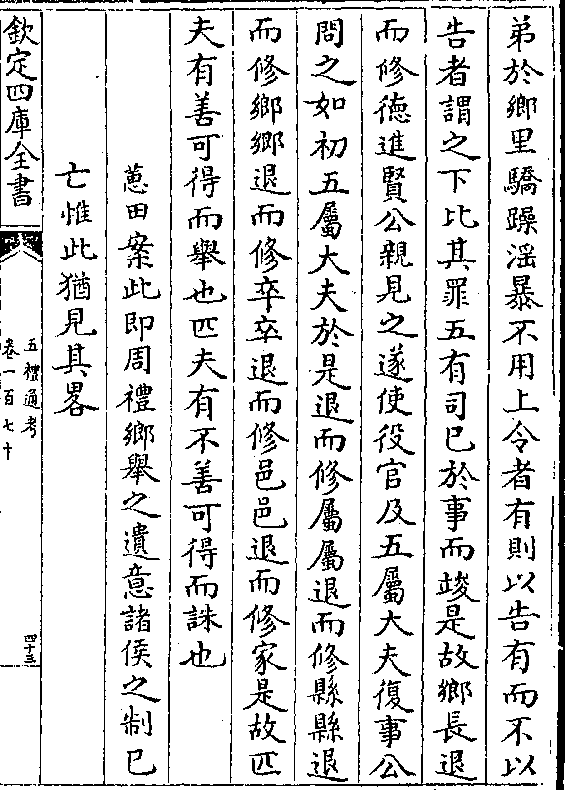 弟於鄉里驕躁淫暴不用上令者有則以告有而不以
告者謂之下比其罪五有司已於事而竣是故鄉長退
而修德進賢公親見之遂使役官及五屬大夫復事公
問之如初五屬大夫於是退而修屬屬退而修縣縣退
而修鄉鄉退而修卒卒退而修邑邑退而修家是故匹
夫有善可得而舉也匹夫有不善可得而誅也
蕙田案此即周禮鄉舉之遺意諸侯之制已
亡惟此猶見其畧
欽定四庫全書
五禮通考
卷一百七十
四十三